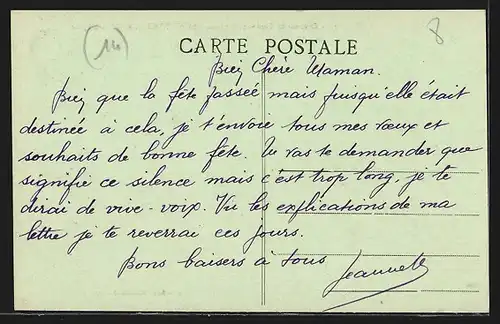 (14)
8
CARTE POSTALE
Bien Chère Maman.
Bien que la fête passée mais puisqu'elle était
destinée à cela, je t'envoie tous mes vœux et
souhaits de bonne fête. Tu vas te demander que
signifie ce silence mais c'est trop long, je te
dirai de vive-voix. Vu les explications de ma
lettre je te reverrai ces jours.
Bons baisers à tous Jeannette